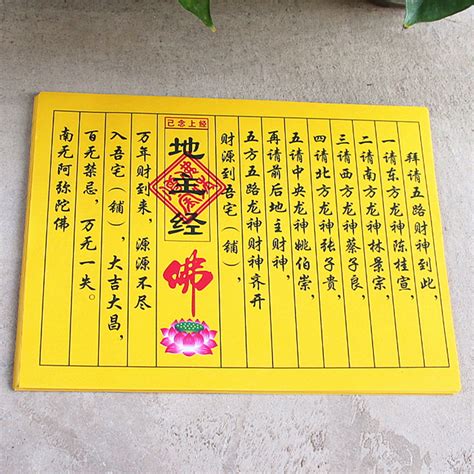 拜请五路财神到此，
一请东方龙神陈桂宣，
二请南方龙神林景宗，
三请西方龙神蔡子良，
四请北方龙神张子贵，
五请中央龙神姚伯崇，
再请前后地主财神，
五方五路龙神财神齐开
财源到吾宅（铺），
已念上经
地主经
佛
万年财到来，源源不尽
入吾宅（铺），大吉大昌，
百无禁忌，万无一失。
南无阿弥陀佛